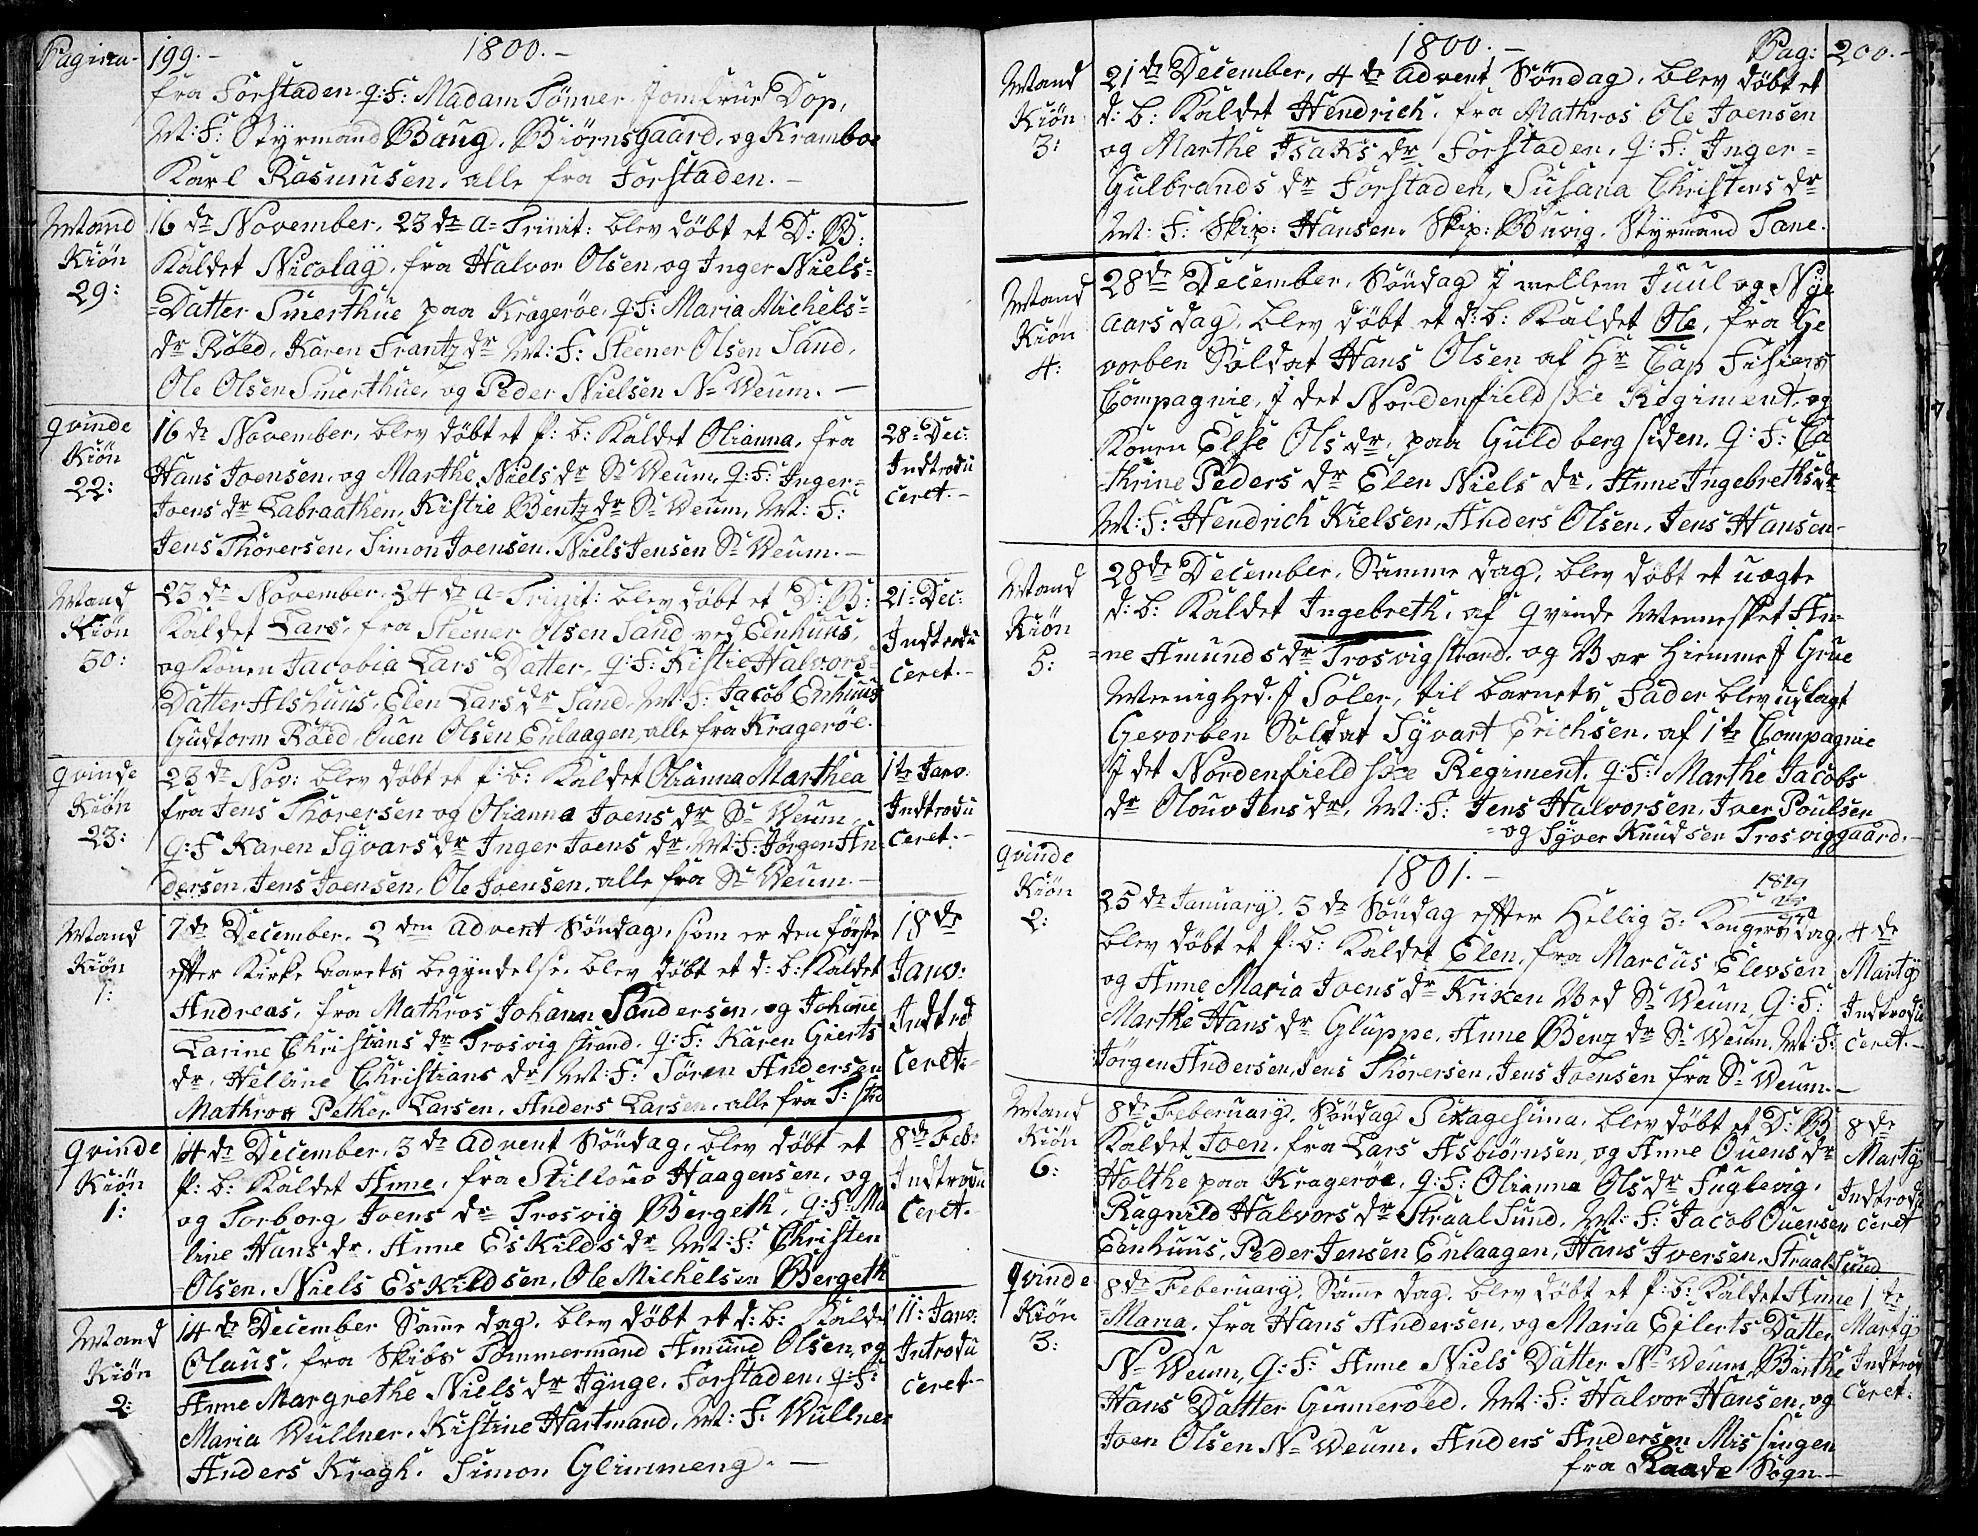 Pagina- 199.- 1800.-
fra Forstaden. q: F: Madam Tønner. Jomfrue Dop,
M: F: Styrmand Baug, Biørnsgaard, og Kramboe
Karl Rasmusen, alle fra Forstaden.-
Mand
Kiøn
29:
16 de November, 23 de a= Trinit: blev døbt et D: B:
Kaldet Nicolaÿ, fra Halvor Olsen, og Inger Niels=
=Datter Smerthue paa Kragerøe, q: F: Maria Michels=
dr Røed, Karen Frantz dr M: F: Steener Olsen Sand,
Ole Olsen Smerthue, og Peder Nielsen N= Weum.-
qvinde
Kiøn
22:
16 de November, blev døbt et p: b: Kaldet Olianna, fra
Hans Joensen, og Marthe Niels dr S= Weum, q: F: Inger=
Joens dr Labraathen, Kistie Bentz dr S= Weum, M: F:
Jens Thorersen, Simon Joensen, Niels Jensen S= Weum.-
28= Dec:
Indtrodu
ceret.-
Mand
Kiøn
30:
23 de November, 24 de a= Trinit: blev døbt et D: B:
Kaldet Lars, fra Steener Olsen Sand ved Eenhuus,
og Konen Jacobia Lars Datter, q: F: Kistie Halvors=
Datter Alshuus, Elen Lars dr Sand, M: F: Jacob Enhuus
Gudtorm Røed, Ouen Olsen Enlaagen, alle fra Kragerøe.
21= Dec:
Indtrodu
ceret.-
qvinde
Kiøn
23:
23 de Nov: blev døbt et p: b: Kaldet Olianna Marthea
fra Jens Thorersen og Olianna Joens dr S= Weum,
q: F Karen Syvars dr Inger Joens dr. M: F: Jørgen An
dersen, Jens Joensen, Ole Joensen, alle fra S= Weum.-
1te Janv:
Indtrodu
ceret.-
Mand
Kiøn
1:
7 de December, 2 den Advent Søndag, som er den første
efter Kirke Aarets begyndelse, blev døbt et d: b: Kaldet
Andreas, fra Mathros Johann Sandersen, og Johanne
Larine Christians dr Trosvig strand. q: F: Karen Gierts
dr, Helline Christians dr M: F: Søren Andersen
Mathros Pether Larsen, Anders Larsen, alle fra T: strd
18 de
Janv:
Indtrod
ceret:-
qvinde
Kiøn
1:
14 de December, 3 de Advent Søndag, blev døbt et
p: b: Kaldet Anne, fra Stillouv Haagensen, og
og Torborg Joens dr Trosvig Bergeth, q: F: Ma
line Hans dr, Anne Eskilds dr M: F: Christen
Olsen, Niels Eskildsen, Ole Michelsen Bergeth
8 de Feb:
Indtrodu
ceret.-
Mand
Kiøn
2:
14 de December Samme dag, blev døbt et d: b: Kaldet
Olaus, fra Skibs Tømmermand Amund Olsen, og
Anne Margrethe Niels dr Jynge, Forstaden, q: F:
Maria Wullner, Kistine Hartmand, M: F: Wullner
Anders Kragh, Simon Glimmeng.-
11: Janv:
Introdu
ceret.-
1800.- Pag: 200.-
Mand
Kiøn
3:
21 de December, 4 de Advent Søndag, blev døbt et
d: b: Kaldet Hendrich, fra Mathros Ole Joensen
og Marthe Isaks dr Forstaden, q: F: Inger=
Gulbrands dr Forstaden, Susana Christens dr
M: F: Skip: Hansen. Skip: Buvig. Styrmand Tane.
Mand
Kiøn
4:
28 de December, Søndag J mellem Juul og Nye
aars dag, blev døbt et d: b: Kaldet Ole, fra Ge
vorben Soldat Hans Olsen af Hr Cap Fishers
Compagnie, J det Nordenfieldske Regiment, og
Konen Else Ols dr, paa Guldberg siden, q: F: Ca
thrine Peders dr Elen Niels dr, Anne Ingebreths dr
M: F: Hendrich Kielsen, Anders Olsen, Jens Hansen-
Mand
Kiøn
5:
28 de December, Samme dag, blev døbt et uægte
d: b: Kaldet Ingebreth, af qvinde Mennesket An-
=ne Amunds dr Trosvig strand, og Var hiemme J Grue
Meenighed. J Soler, til barnets Fader blev udlagt
Gevorben Soldat Syvart Erichsen, af 1te Compagnie
J det Nordenfieldske Regiment, q: F: Marthe Jacobs
dr Olouv Jens dr, M: F: Jens Halvorsen, Iver Poulsen
=og Syver Knudsen Trosviggaard.-
1801.-
qvinde
Kiøn
2:
1819
25 de Januarÿ, 3 de Søndag effter Hellig 3: Kongers dag,
blev døbt et p: b: Kaldet Elen, fra Marcus Elevsen
og Anne Maria Joens dr Krixen Ved S= Weum, q: F:
Marthe Hans dr Gluppe, Anne Benz dr S= Weum, M: F:
Jørgen Andersen, Jens Thorersen, Jens Joensen fra S= Weum.-
4 de
Martÿ
Indtrodu
ceret.-
Mand
Kiøn
6:
8 de Februarÿ, Søndag Sexagesima, blev døbt et D: B
Kaldet Joen, fra Lars Asbiørnsen, og Anne Ouens dr
Holthe paa Kragerøe, q: F: Olianna Ols dr Fuglevig,
Ragnild Halvors dr Straal Sund, M: F: Jacob Ouensen
Eenhuus, Peder Jensen Enlaagen, Hans Iversen, Straal Sund
8 de
Martÿ
Indtrodu
ceret
qvinde
Kiøn
3:
8 de Februarÿ, Samme dag, blev døbt et p: b: Kaldet Anne
=Maria, fra Hans Andersen, og Maria Ejlerts Datter
N= Weum, q: F: Anne Niels Datter N= Weum, Barthe
Hans Datter Gunnerøed, M: F: Halvor Hansen, og
Joen Olsen N= Weum, Anders Andersen Missingen
fra Raade Sogn.-
1 te
Martÿ
Indtrodu
ceret.